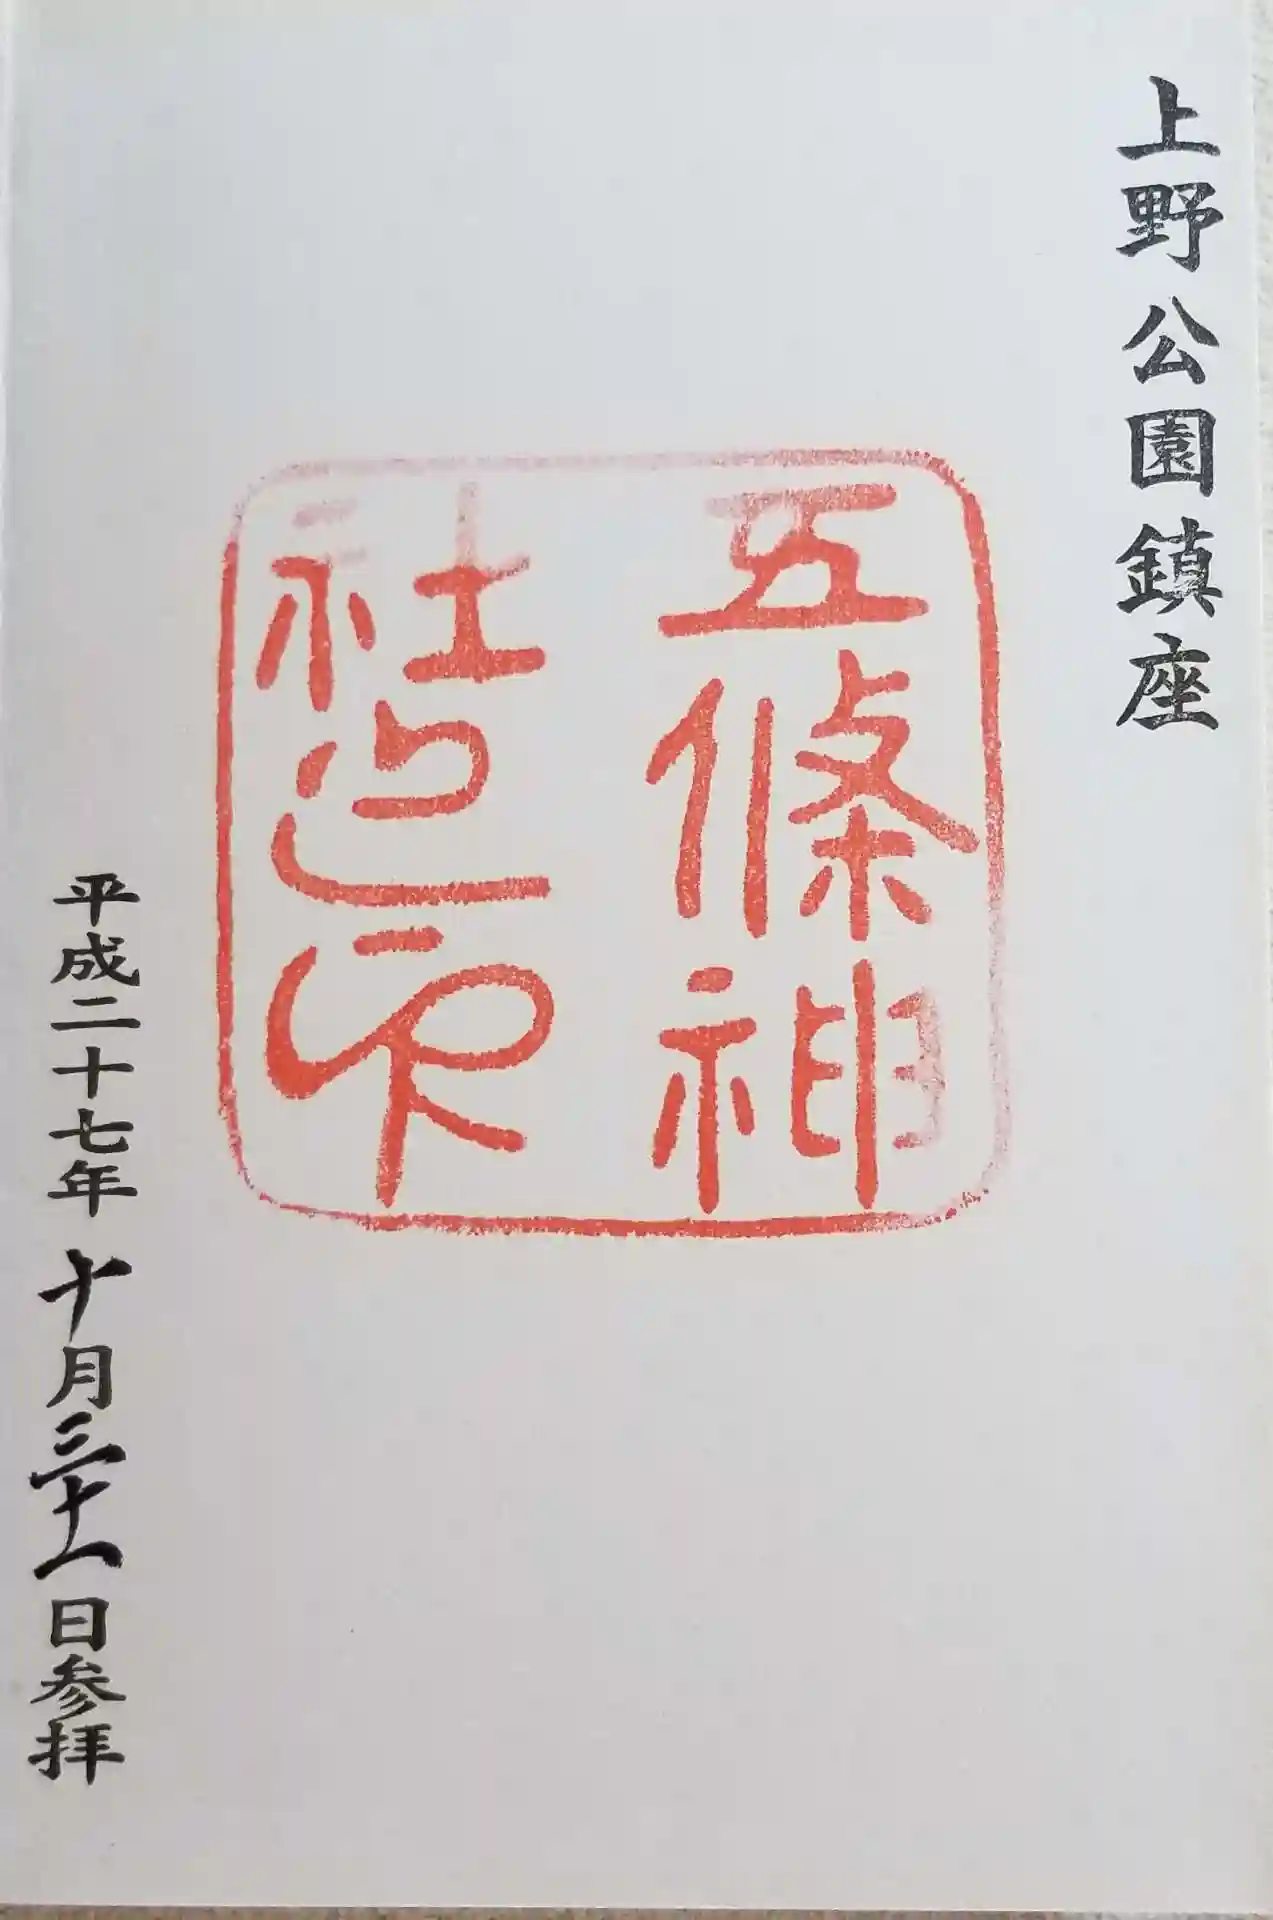 上野公園鎮座
五條神
社
平成二十七年十月三十一日参拝